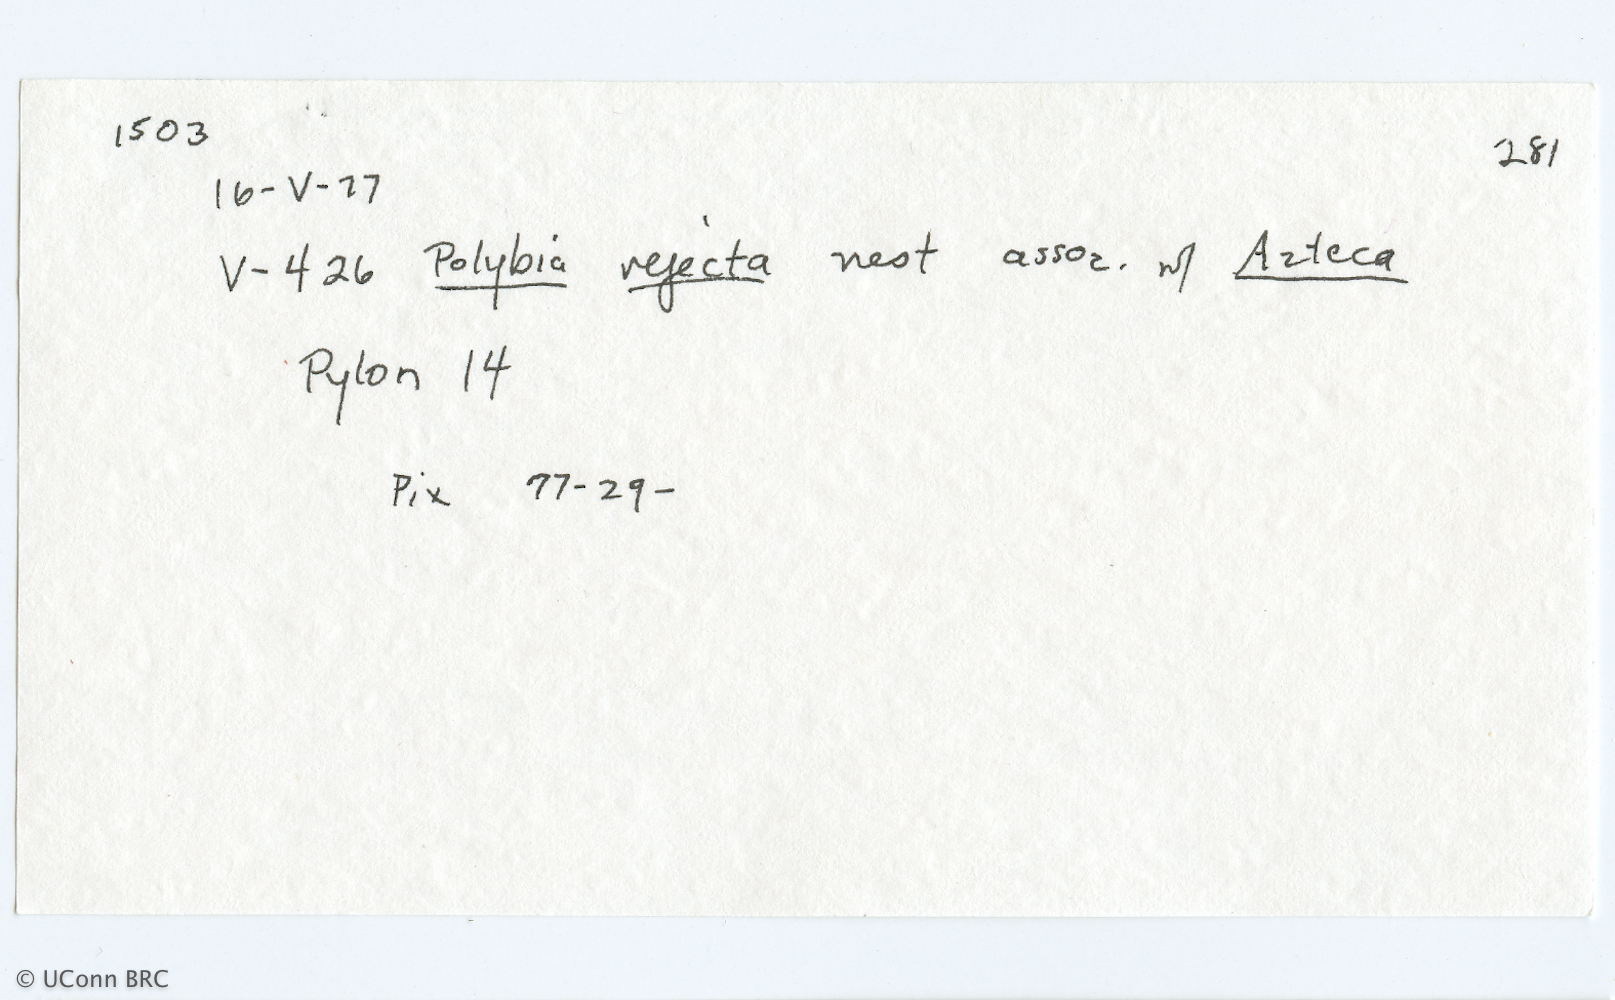 1503
281
16-V-77
V-426 Polybia rejecta nest assoc. w/ Azteca
Pylon 14
Pix 77-29-
© UConn BRC